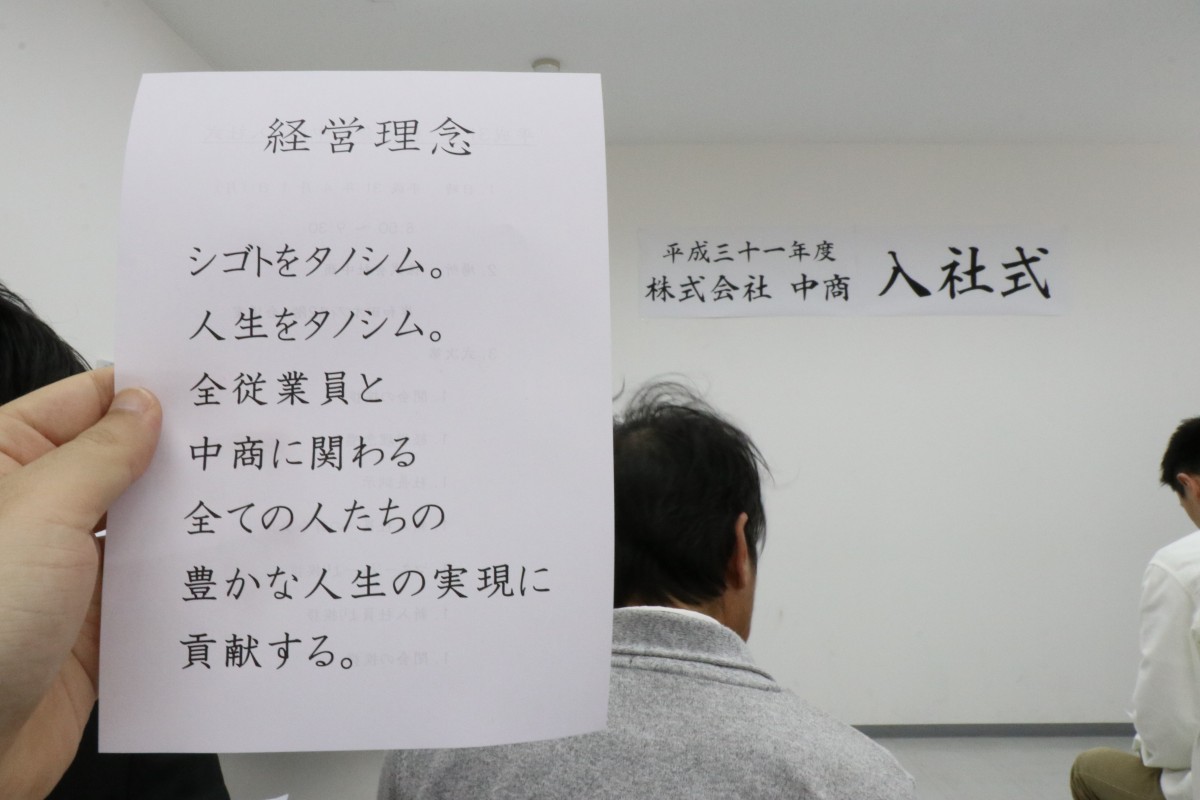 経営理念
シゴトをタノシム。
人生をタノシム。
全従業員と
中商に関わる
全ての人たちの
豊かな人生の実現に
貢献する。
平成三十一年度
株式会社 中商 入社式